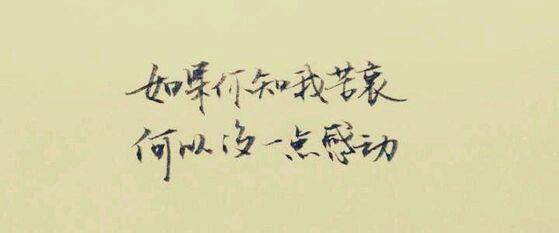 如果你知我苦衷
何以没一点感动